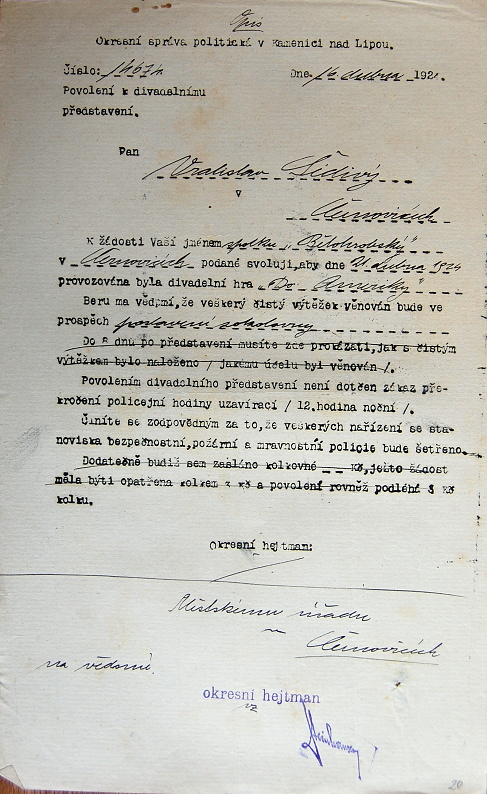 Opis
Okresní správa politická v Kamenici nad Lipou.
Číslo: Dne 16 dubna 192
Povolení k divadelnímu
představení.
Pan
Vratislav Šedivý
v
Černovicích
K žádosti Vaší jménem spolku „Bělohrobský"
v Černovicích podané svoluji,aby dne dubna 1924
provozována byla divadelní hra „Do Ameriky"
Beru na vědomí, že veškerý čistý výtěžek věnován bude ve
prospěch postavení sokolovny
Do 8 dnů po představení musíte zde prokázati,jak s čistým
výtěžkem bylo naloženo / jakému účelu byl věnován /.
Povolením divadelního představení není dotčen zákaz pře-
kročení policejní hodiny uzavírací / 12.hodina noční /.
Činíte se zodpovědným za to,že veškerých nařízení se sta-
noviska bezpečnostní,požární a mravnostní policie bude šetřeno.
Dodatečně budiž sem zasláno kolkovné Kč,ježto žádost
měla býti opatřena kolkem Kč a povolení rovněž podléhá Kč
kolku.
Okresní hejtman:
Městskému úřadu
v
Černovicích
na vědomí.
okresní hejtman
vz
20